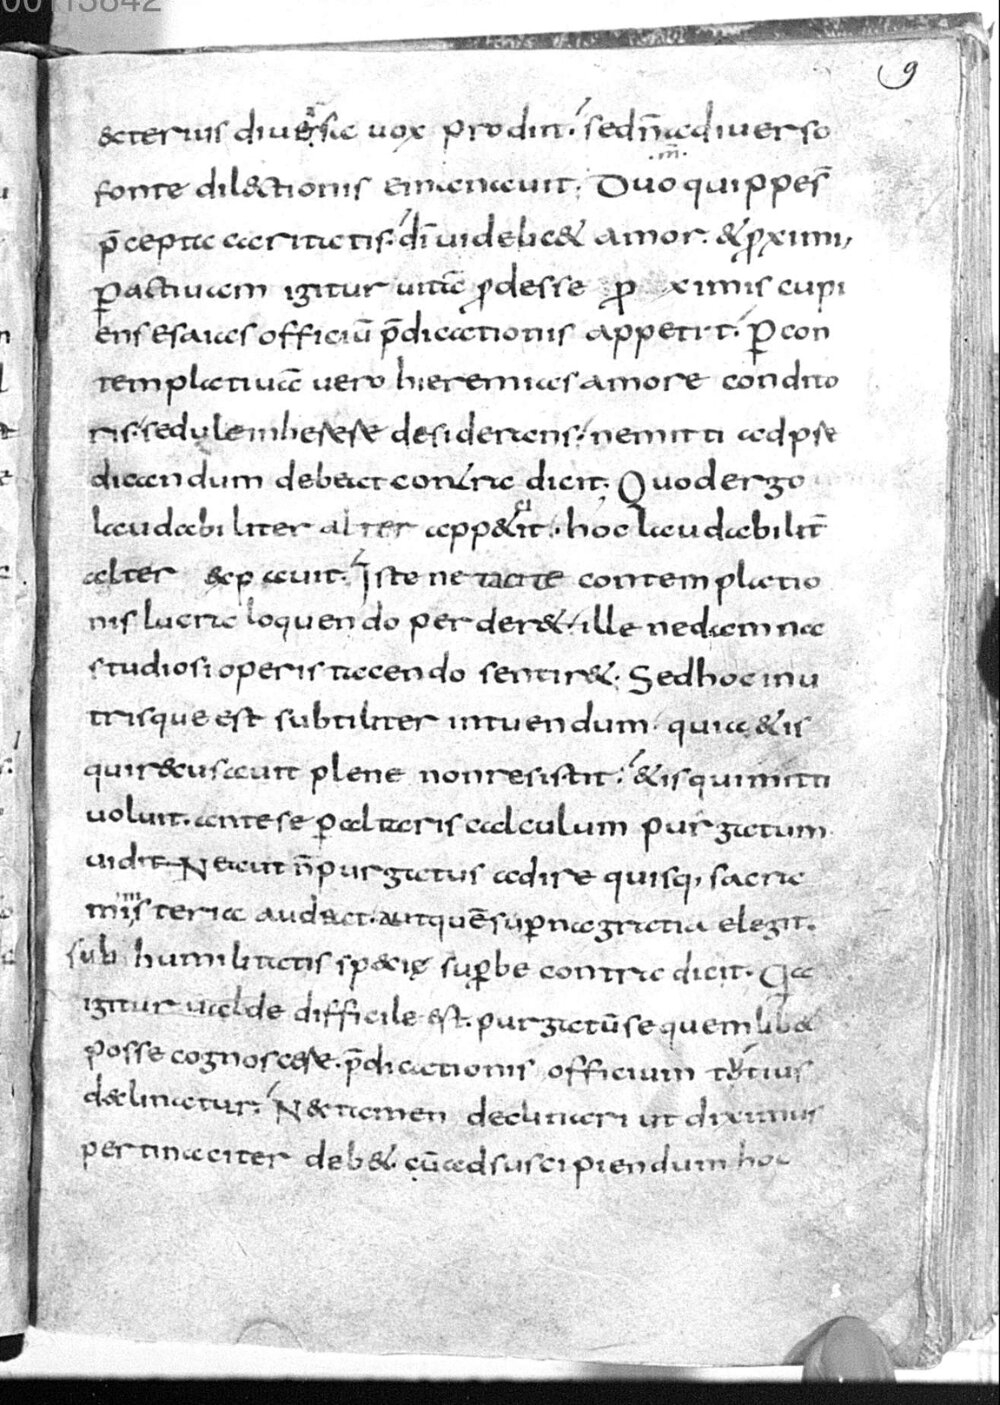 00113842
9
&terius diuersa uox prodiit. sed n̄ a diuerso
fonte dilectionis emanauit. Duo quippe s̄
p̄cepta caritatis. dī uidelic& amor. & proximi,
ꝑ actiuam igitur uitā ꝓdesse ꝓ ximis cupi
ens esaias officiū p̄dicationis appetit. ꝑ con
templatiuā uero hieremias amore condito
ris. sedulem herere desiderans. ne mitti ad p̄
dicandum debeat contra dicit. Quod ergo
laudabiliter alter app&iit. hoc laudabilit̄
alter expauit. Iste ne tacite contemplatio
nis lucra loquendo perder&. ille ne damna
studiosi operis tacendo sentir&. Sed hoc in u
trisque est subtiliter intuendum. quia & is
qui recusauit plene non resistit. & is qui mitti
uoluit. ante se ꝑ altaris calculum purgatum
uidit. Ne aut n̄ purgatus adire quisq, sacra
misteria audeat. aut quē suꝑna gratia elegit.
sub humilitatis specie suꝑbe contra dicit. Qa
igitur ualde difficile est. purgatū se quemlib&
posse cognoscere. p̄dicationis officium tutius
declinatur. Nec tamen declinari ut diximus
pertinaciter deb&. cū ad suscipiendum hoc